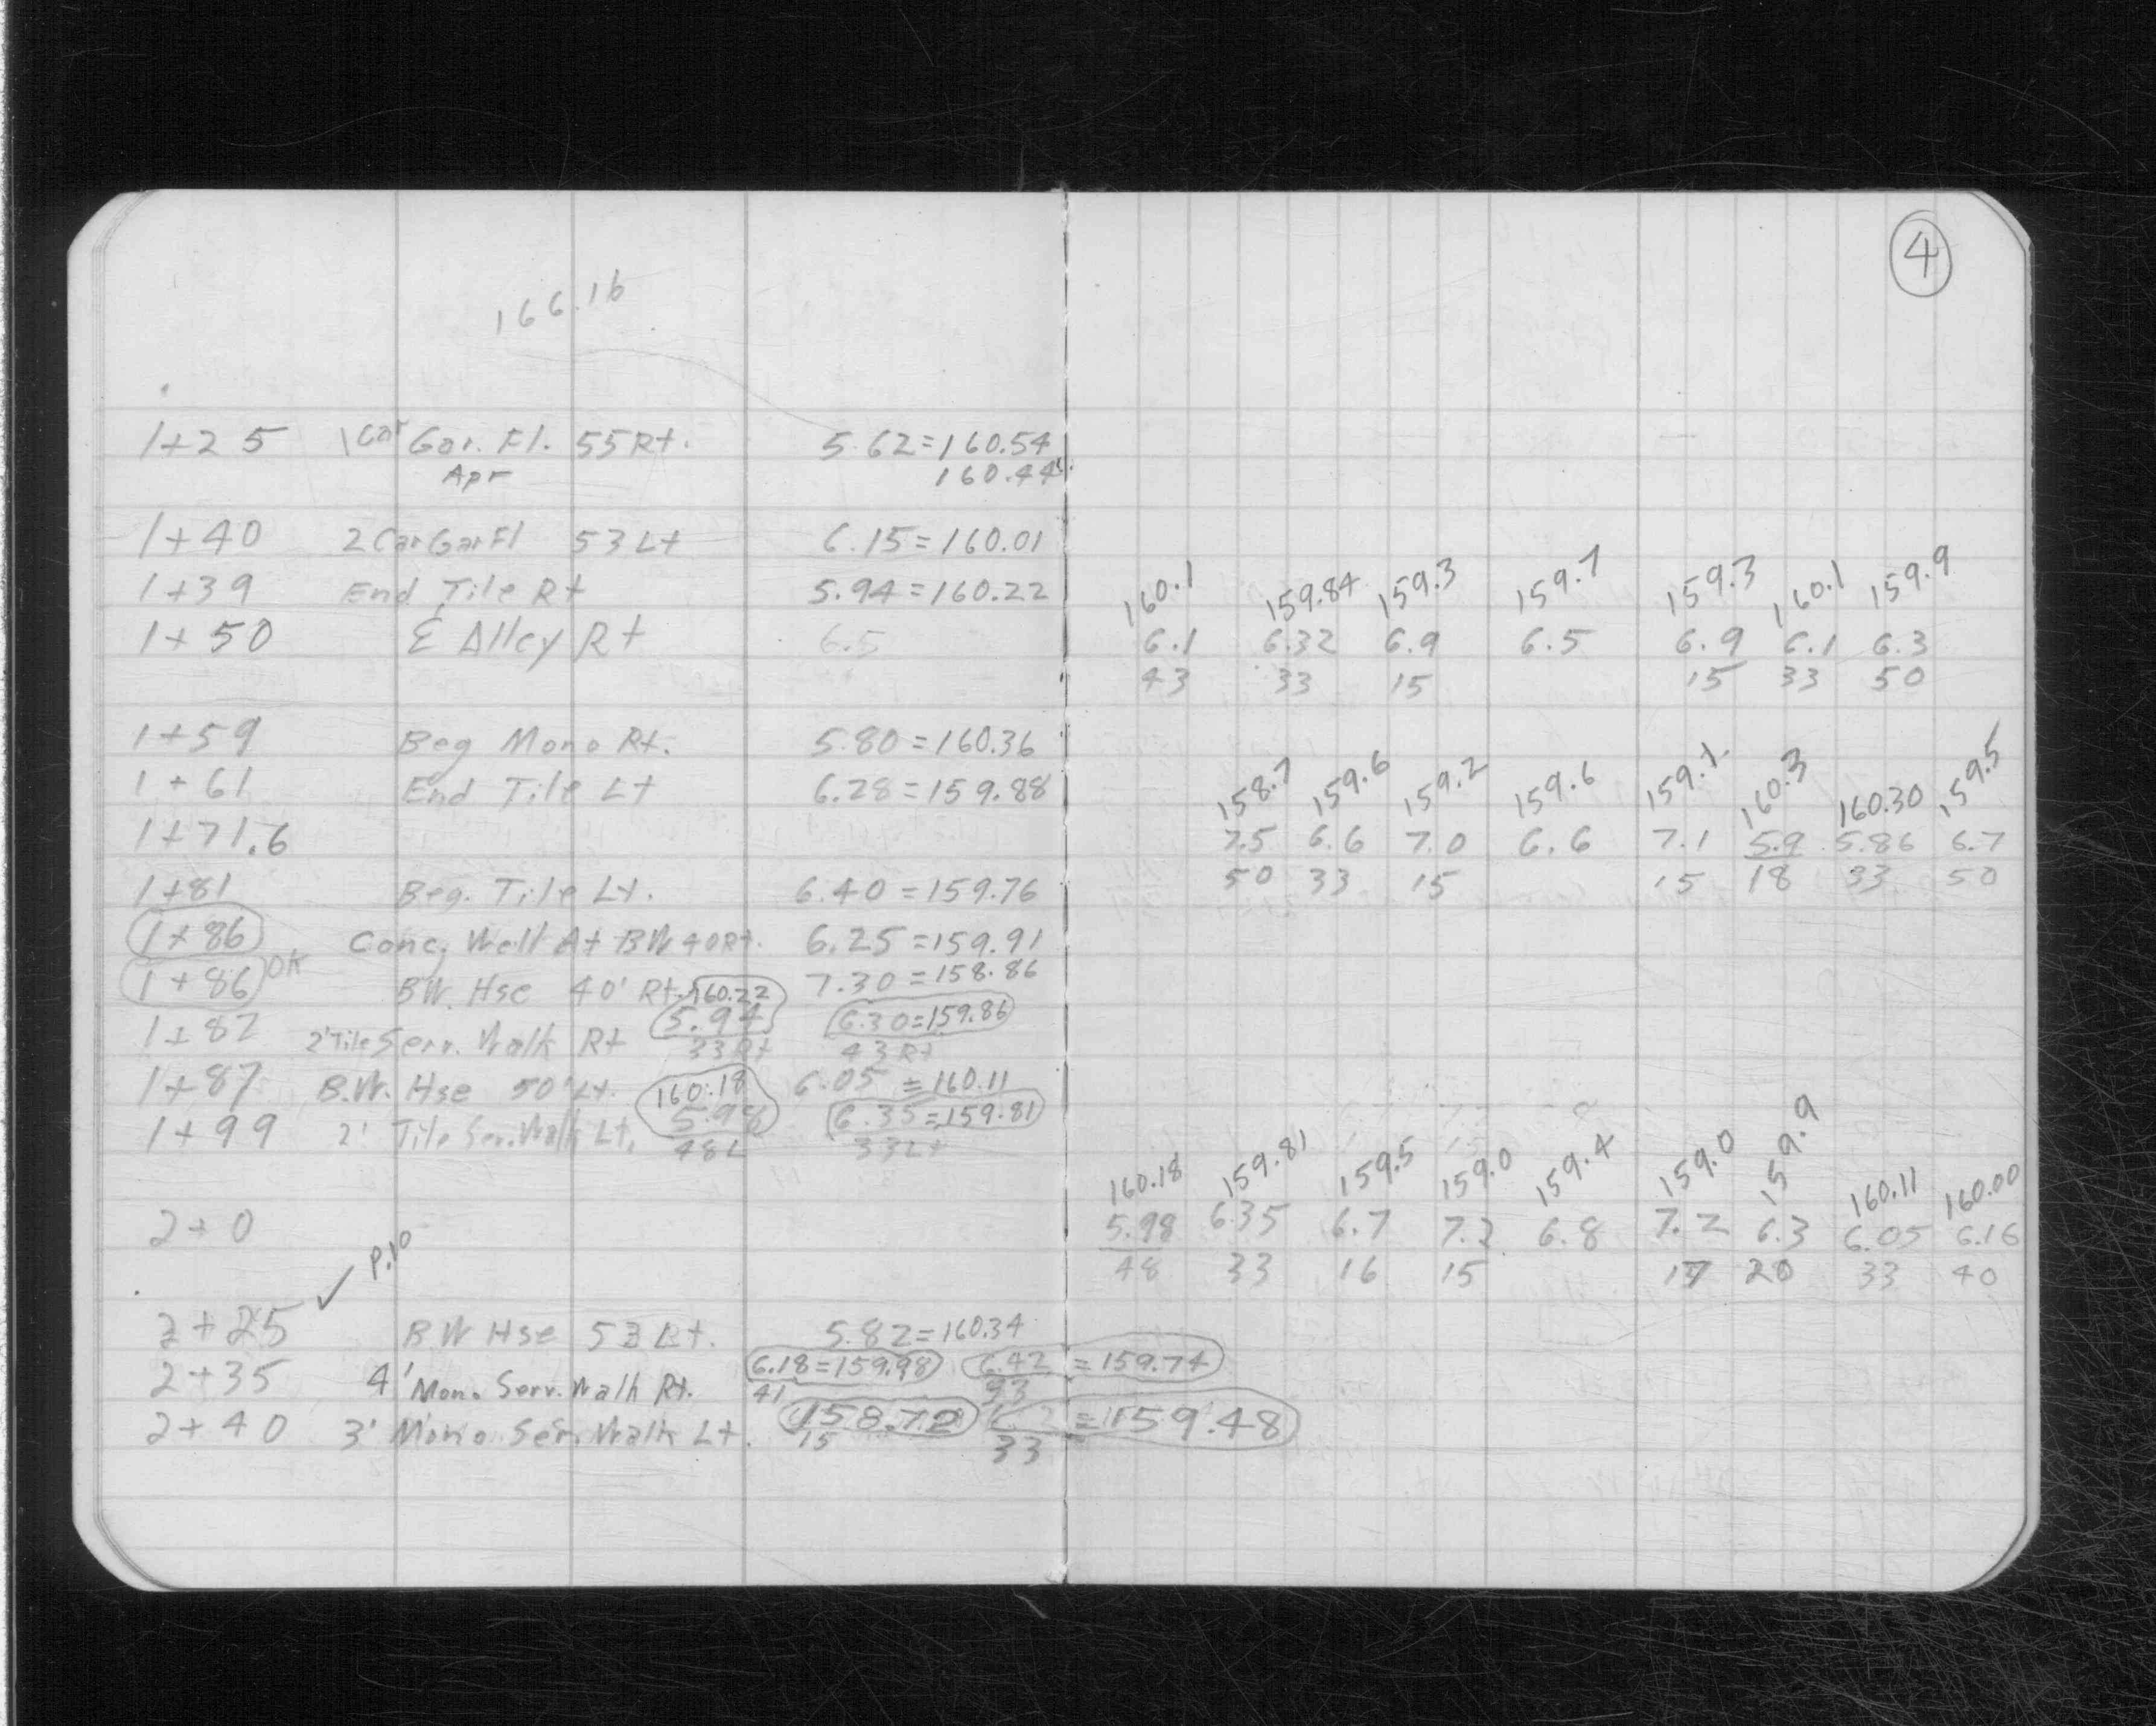 4
166.16
1+25 1 Car Gar. Fl. 55 Rt. 5.62=160.54
Apr 160.44
1+40 2 Car Gar Fl 53 Lt 6.15=160.01
1+39 End Tile Rt 5.94=160.22
160.1 159.84 159.3 159.7 159.3 160.1 159.9
1+50 Alley Rt 6.5 6.1 6.32 6.9 6.5 6.9 6.1 6.3
43 33 15 15 33 50
1+59 Beg Mono Rt. 5.80=160.36
1+61 End Tile Lt 6.28=159.88
158.7 159.6 159.2 159.6 159.1 160.3 160.30 159.5
1+71.6 7.5 6.6 7.0 6.6 7.1 5.9 5.86 6.7
50 33 15 15 18 33 50
1+81 Beg. Tile Lt. 6.40=159.76
1+86 Conc. Wall At BW 40 Rt. 6.25=159.91
1+86 OK B.W. Hse 40' Rt. 7.30=158.86
160.22
1+82 2' Tile Serv. Walk Rt 5.94 6.30=159.86
33 Rt 43 Rt
1+87 B.W. Hse 50' Lt. 6.05=160.11
160.18
1+99 2' Tile Ser. Walk Lt. 5.98 6.35=159.81
48 L 33 Lt
160.18 159.81 159.5 159.0 159.4 159.0 159.9 160.11 160.00
2+0 5.98 6.35 6.7 7.2 6.8 7.2 6.3 6.05 6.16
48 33 16 15 17 20 33 40
✓ P.10
2+25 B W Hse 53 Lt. 5.82=160.34
2+35 4' Mono Serv. Walk Rt. 6.18=159.98 6.42=159.74
41 33
2+40 3' Mono Ser. Walk Lt. 158.72 =159.48
15 33